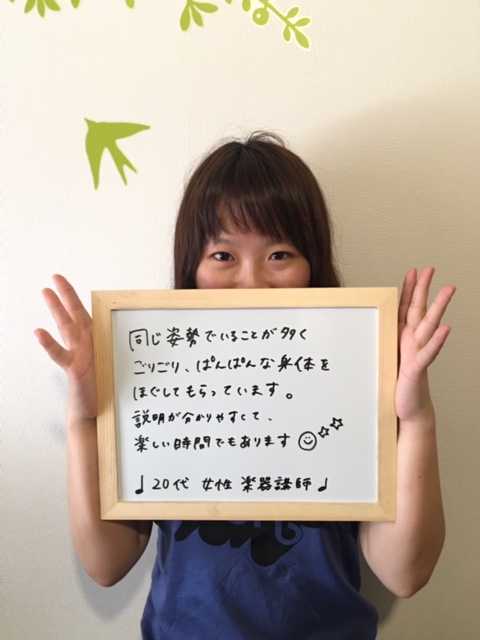 同じ姿勢でいることが多く
ごりごり、ぱんぱんな身体を
ほぐしてもらっています。
説明が分かりやすくて、
楽しい時間でもあります☺☆☆
♩20代 女性 楽器講師♩